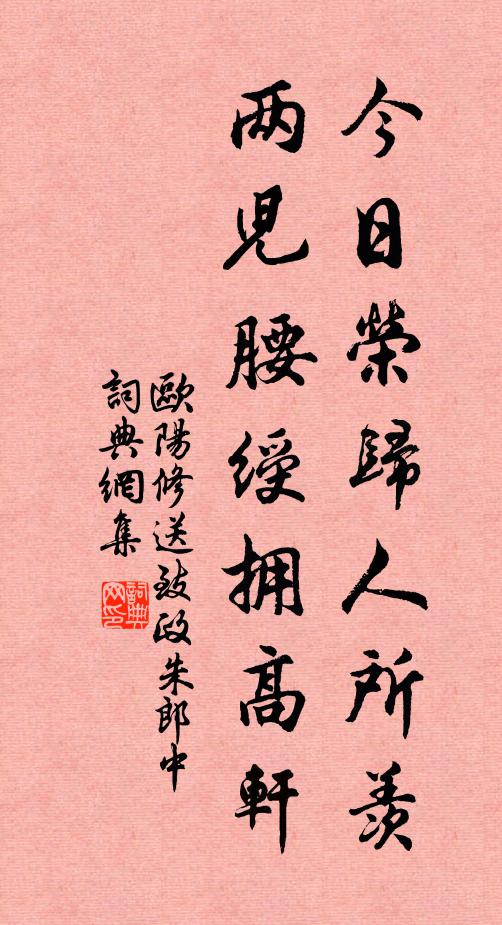 今日榮歸人所羨
两児腰綬拥高軒
歐陽修送致政朱郎中
詞典網集
詞典网印